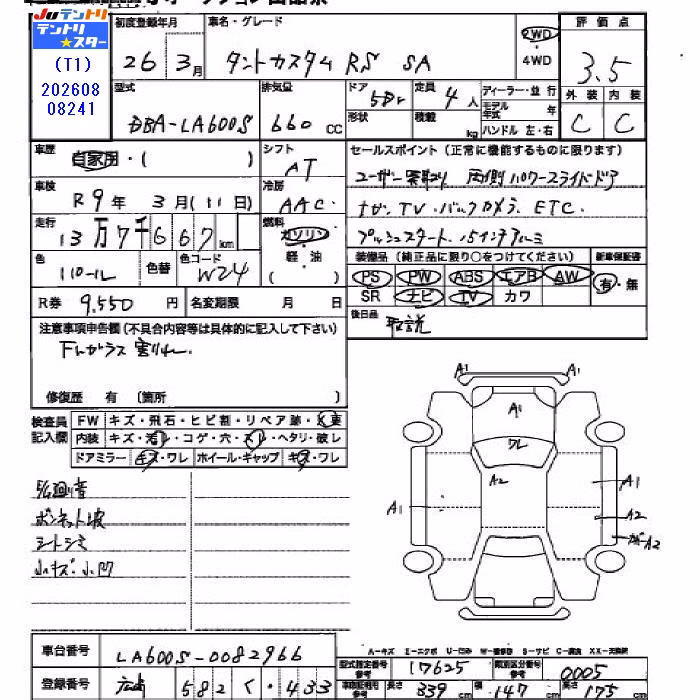 Juテントリ
テントリ★スター
(T1)
202608
08241
初度登録年月
26年3月
車名・グレード
タントカスタム RS SA
2WD
・
4WD
評価点
3.5
型式
DBA-LA600S
排気量
660 CC
ドア
5Dr
形状
定員
4人
積載
kg
ディーラー・並行
モデル年式 年
ハンドル 左・右
外装
C
内装
C
車歴
自家用・( )
シフト
AT
セールスポイント(正常に機能するものに限ります)
ユーザー買取り 両側パワースライドドア
ナビ.TV.バックカメラ.ETC.
プッシュスタート.15インチアルミ
車検
R9年3月(11日)
冷房
AAC
走行
13万7千667km
燃料
ガソリン
軽・油
( )
色
パール
色替
色コード
W24
装備品(純正品に限り○をつけてください)
PS PW ABS エアB AW
SR ナビ TV カワ
新車保証書
有・無
R券 9,550円
名変期限 月 日
後日品
取説
注意事項申告欄(不具合内容等は具体的に記入して下さい)
Fガラス割れ
修復歴 有 〔箇所 〕
検査員
記入欄
FW キズ・飛石・ヒビ割・リペア跡・
内装 キズ・汚レ・コゲ・穴・スレ・ヘタリ・破レ
ドアミラー キズ・ワレ ホイール・キャップ キズ・ワレ
ボンネット
シートシミ
小キズ.小凹
A1
A1
A1
ワレ
A2
A1
A1
A2
A2
A-キズ E-エクボ U-凹み W-補修跡 S-サビ C-腐食 XX-交換済
車台番号
LA600S-0082966
登録番号
広島 582 く・433
型式指定番号
参考
17625
類別区分番号
参考
0005
長さ 339 cm
幅 147 cm
高さ 175 cm